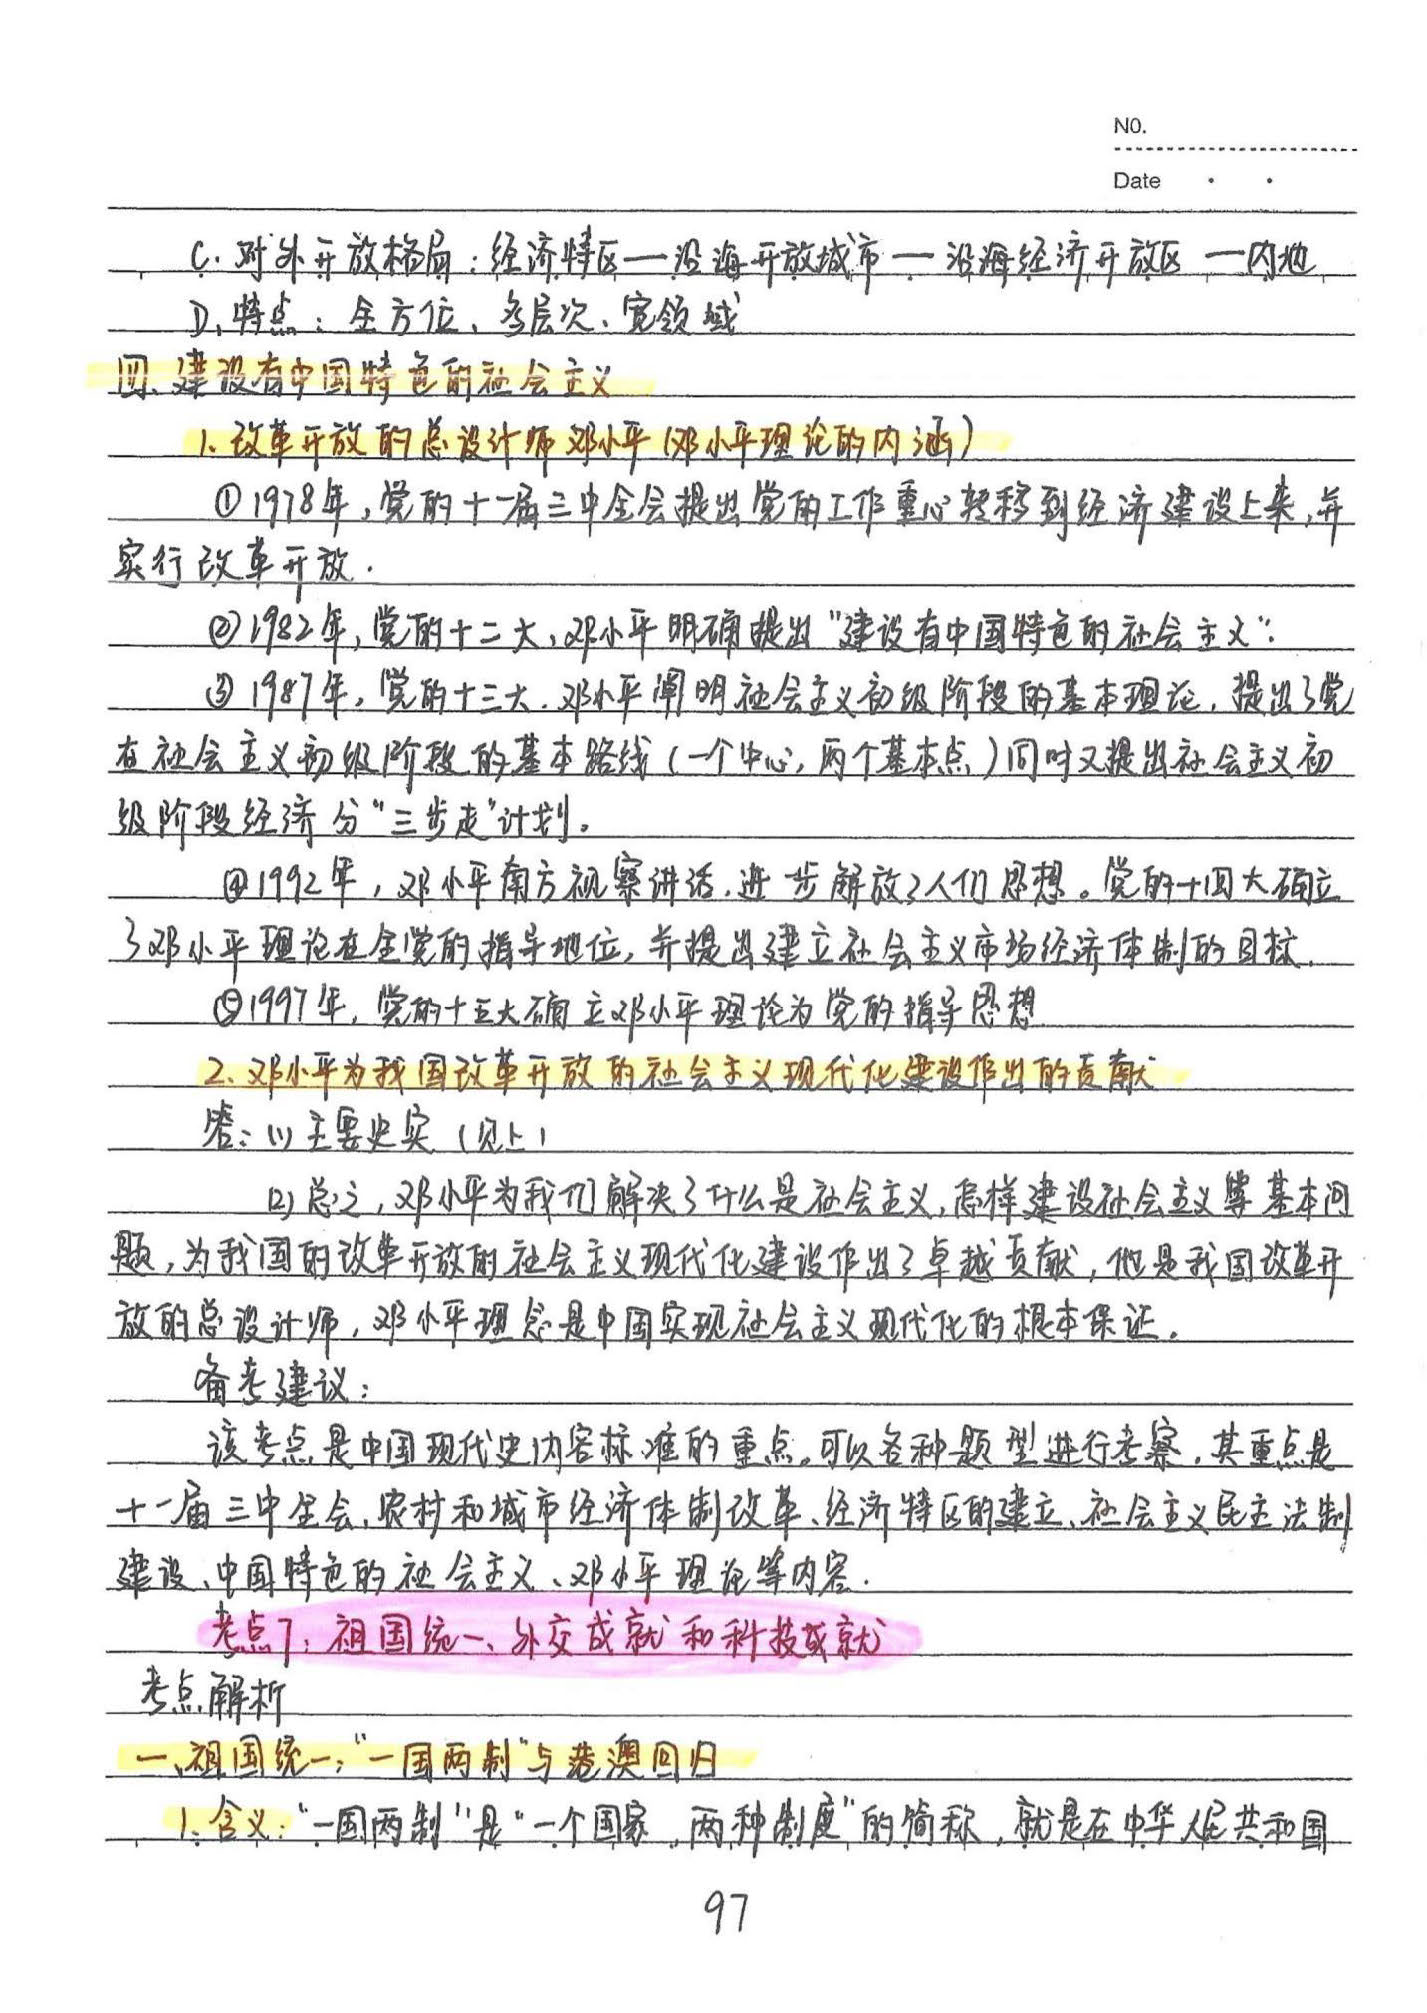 NO.
Date
C. 对外开放格局：经济特区—沿海开放城市—沿海经济开放区—内地
D. 特点：全方位、多层次、宽领域
四、建设有中国特色的社会主义
1. 改革开放的总设计师邓小平（邓小平理论的内涵）
①1978年，党的十一届三中全会提出党的工作重心转移到经济建设上来，并
实行改革开放.
②1982年，党的十二大，邓小平明确提出“建设有中国特色的社会主义”.
③1987年，党的十三大.邓小平阐明社会主义初级阶段的基本理论，提出了党
在社会主义初级阶段的基本路线（一个中心，两个基本点）同时又提出社会主义初
级阶段经济分“三步走”计划。
④1992年，邓小平南方视察讲话，进步解放了人们思想。党的十四大确立
了邓小平理论在全党的指导地位，并提出建立社会主义市场经济体制的目标.
⑤1997年，党的十五大确立邓小平理论为党的指导思想
2. 邓小平为我国改革开放的社会主义现代化建设作出的贡献
答：(1) 主要史实（见上）
(2) 总之，邓小平为我们解决了什么是社会主义，怎样建设社会主义等基本问
题，为我国的改革开放的社会主义现代化建设作出了卓越贡献，他是我国改革开
放的总设计师，邓小平理念是中国实现社会主义现代化的根本保证。
备考建议：
该考点是中国现代史内容标准的重点。可以各种题型进行考察，其重点是
十一届三中全会、农村和城市经济体制改革、经济特区的建立、社会主义民主法制
建设、中国特色的社会主义、邓小平理论等内容.
考点7：祖国统一、外交成就和科技成就
考点解析
一、祖国统一：“一国两制”与港澳回归
1. 含义：“一国两制”是“一个国家，两种制度”的简称，就是在中华人民共和国
97